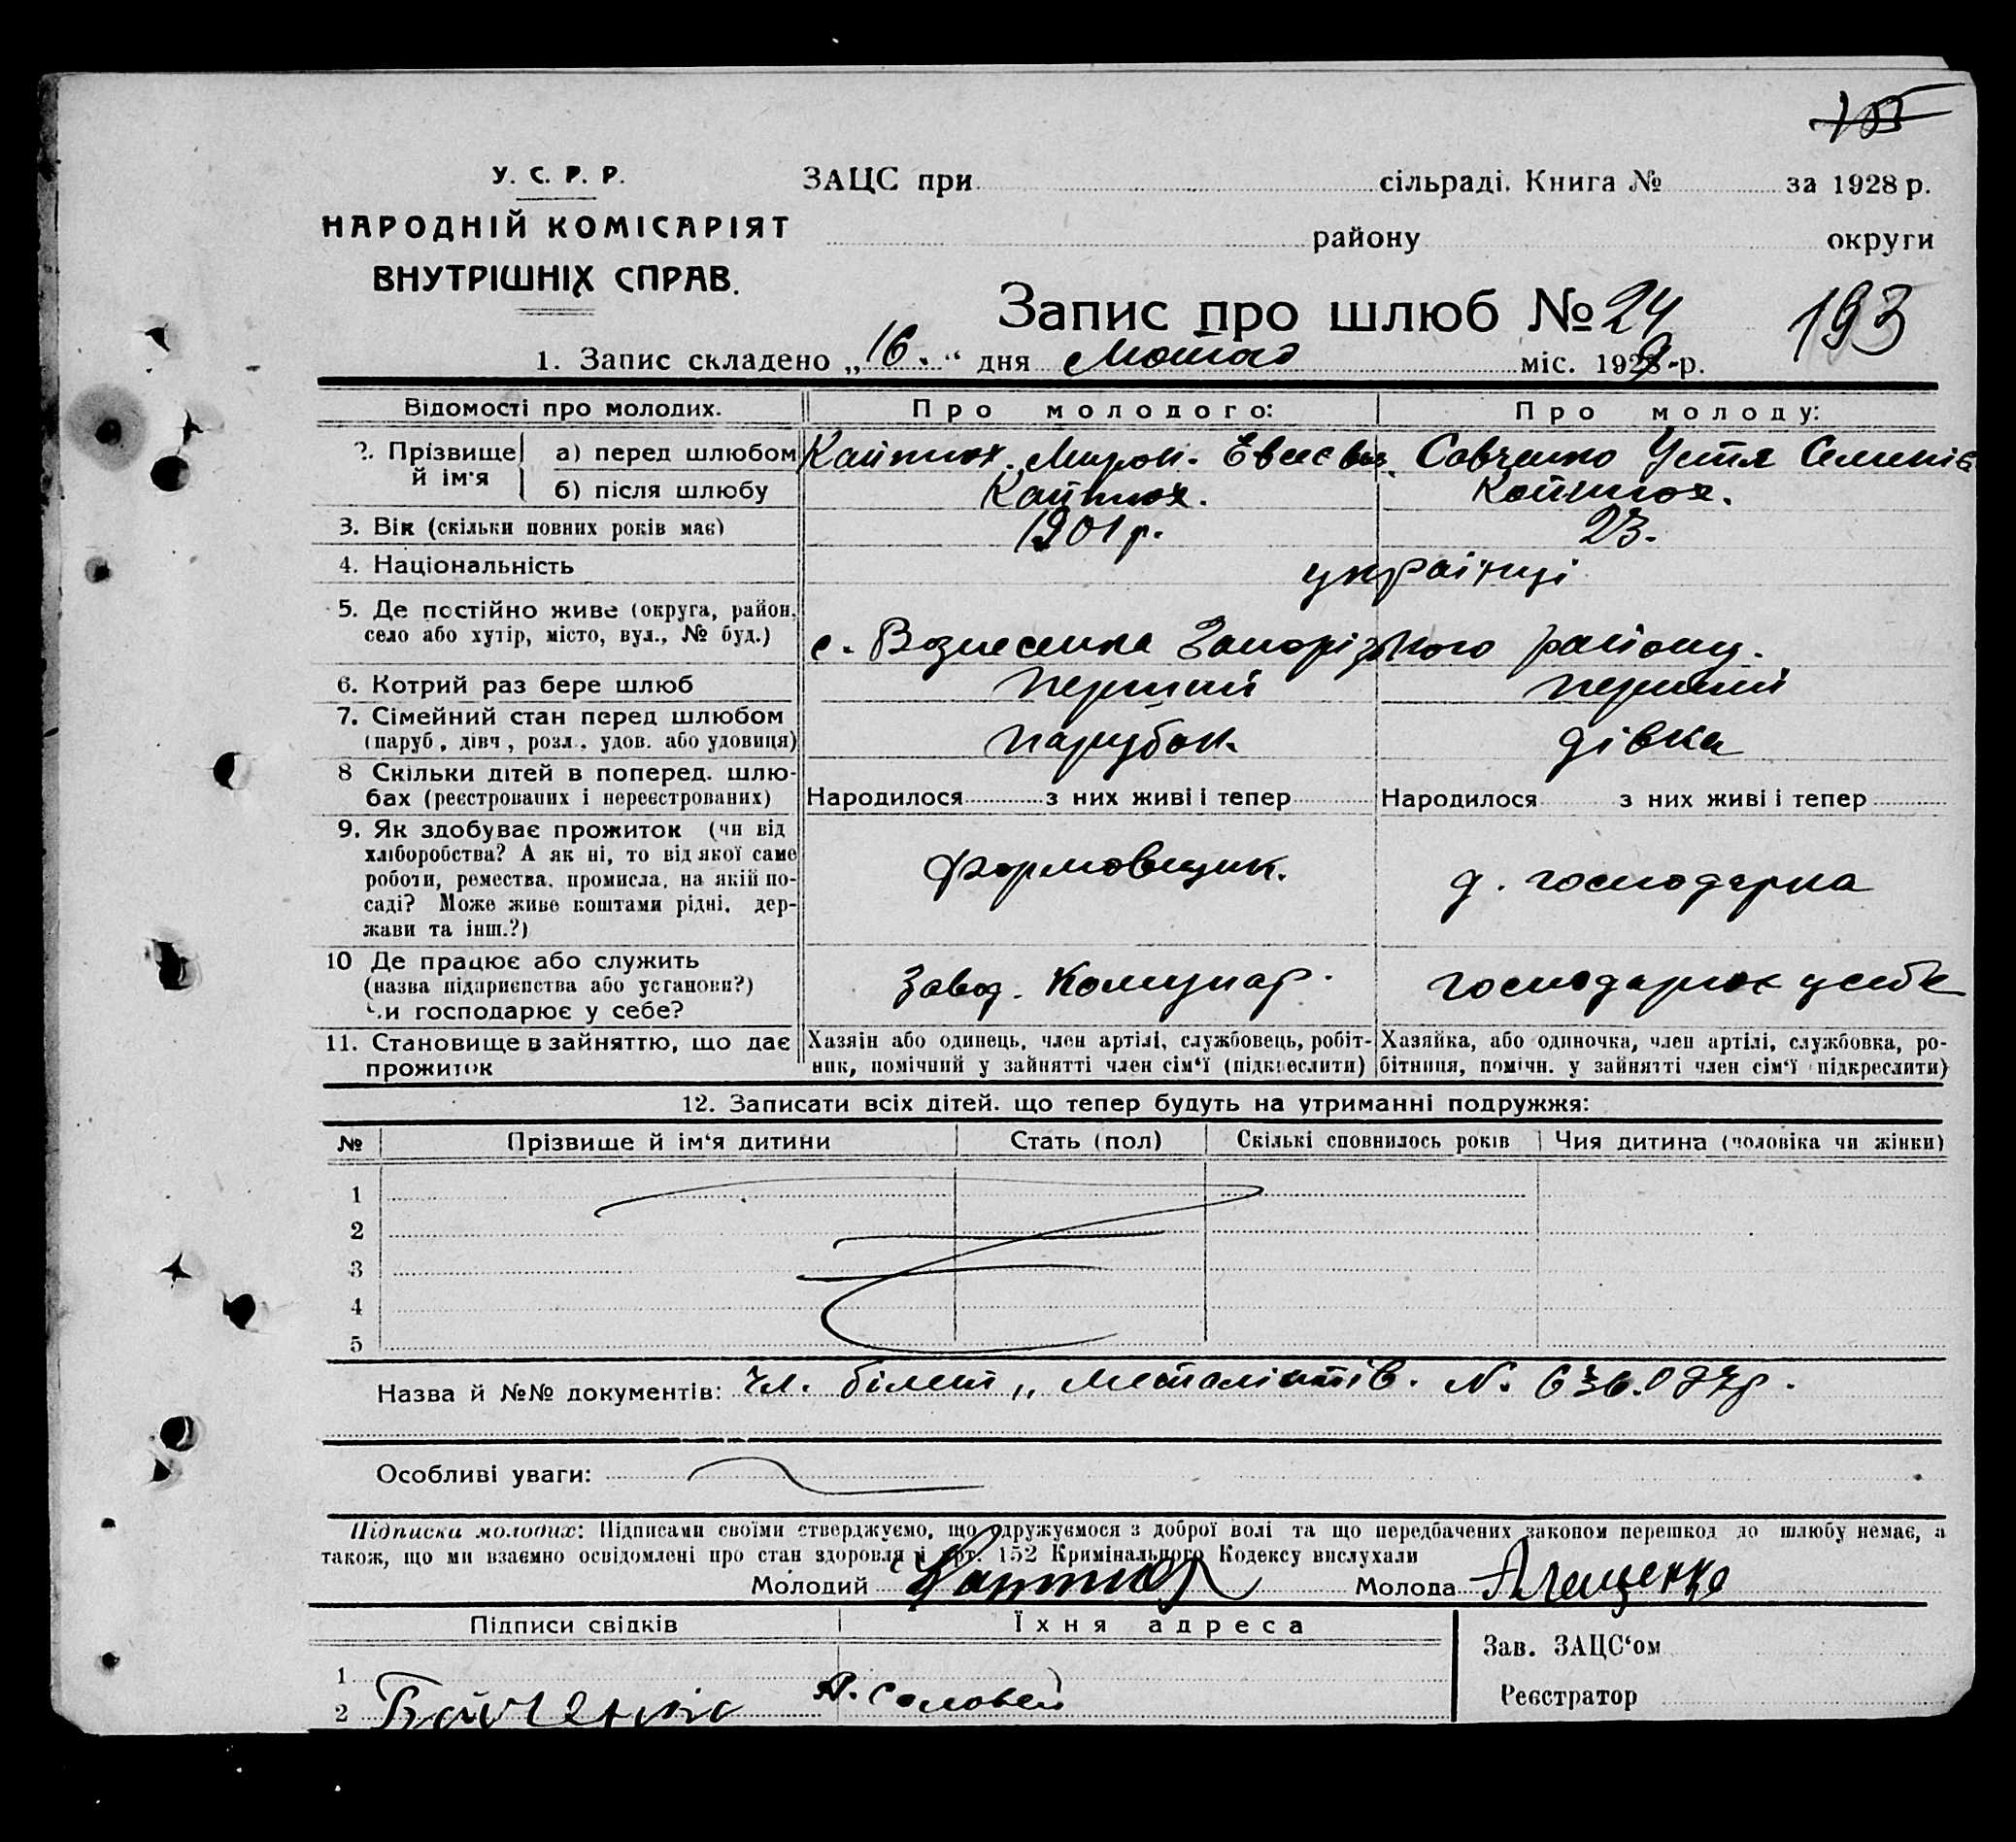 105
У. С. Р. Р.
НАРОДНІЙ КОМІСАРІЯТ
ВНУТРІШНІХ СПРАВ.
ЗАЦС при сільраді. Книга № за 1928 р.
району округи
Запис про шлюб № 24 193
1. Запис складено „16.“ дня Лютаго міс. 1929 р.
Відомості про молодих. Про молодого: Про молоду:
2. Прізвище й ім'я
а) перед шлюбом Мирон Савченко Устя
б) після шлюбу
3. Вік (скільки повних років має) 1901 р. 23.
4. Національність українці
5. Де постійно живе (округа, район,
село або хутір, місто, вул., № буд.) с. Вознесенка Запорізького району.
6. Котрий раз бере шлюб перший перший
7. Сімейний стан перед шлюбом
(паруб., дівч., розл., удов. або удовиця) парубок. дівка
8 Скільки дітей в поперед. шлю-
бах (реєстрованих і нереєстрованих) Народилося з них живі і тепер Народилося з них живі і тепер
9. Як здобуває прожиток (чи від
хліборобства? А як ні, то від якої саме
роботи, ремества, промисла, на якій по-
саді? Може живе коштами рідні, дер-
жави та інш.?)
формовщик. д. господарка
10 Де працює або служить
(назва підприєпства або установи?)
Чи господарює у себе?
завод. Комунар. господарює у себе
11. Становище в зайняттю, що дає
прожиток
Хазяін або одинець, член артілі, службовець, робіт-
ник, помічний у зайнятті член сім'ї (підкреслити)
Хазяйка, або одиночка, член артілі, службовка, ро-
бітниця, помічн. у зайнятті член сім'ї підкреслити)
12. Записати всіх дітей. що тепер будуть на утриманні подружжя:
№ Прізвище й ім'я дитини Стать (пол) Скількі сповнилось років Чия дитина (чоловіка чи жінки)
1
2
3
4
5
Назва й №№ документів: Чл. білет „металістів. N.
Особливі уваги:
Підписка молодих: Підписами своїми стверджуємо, що одружуємося з доброї волі та що передбачених законом перешкод до шлюбу немає, а
також, що ми взаємно освідомлені про стан здоровля і арт. 152 Кримінального Кодексу вислухали
Молодий Молода
Підписи свідків Їхня адреса
Зав. ЗАЦС'ом
1
2 А. Соловей
Реєстратор